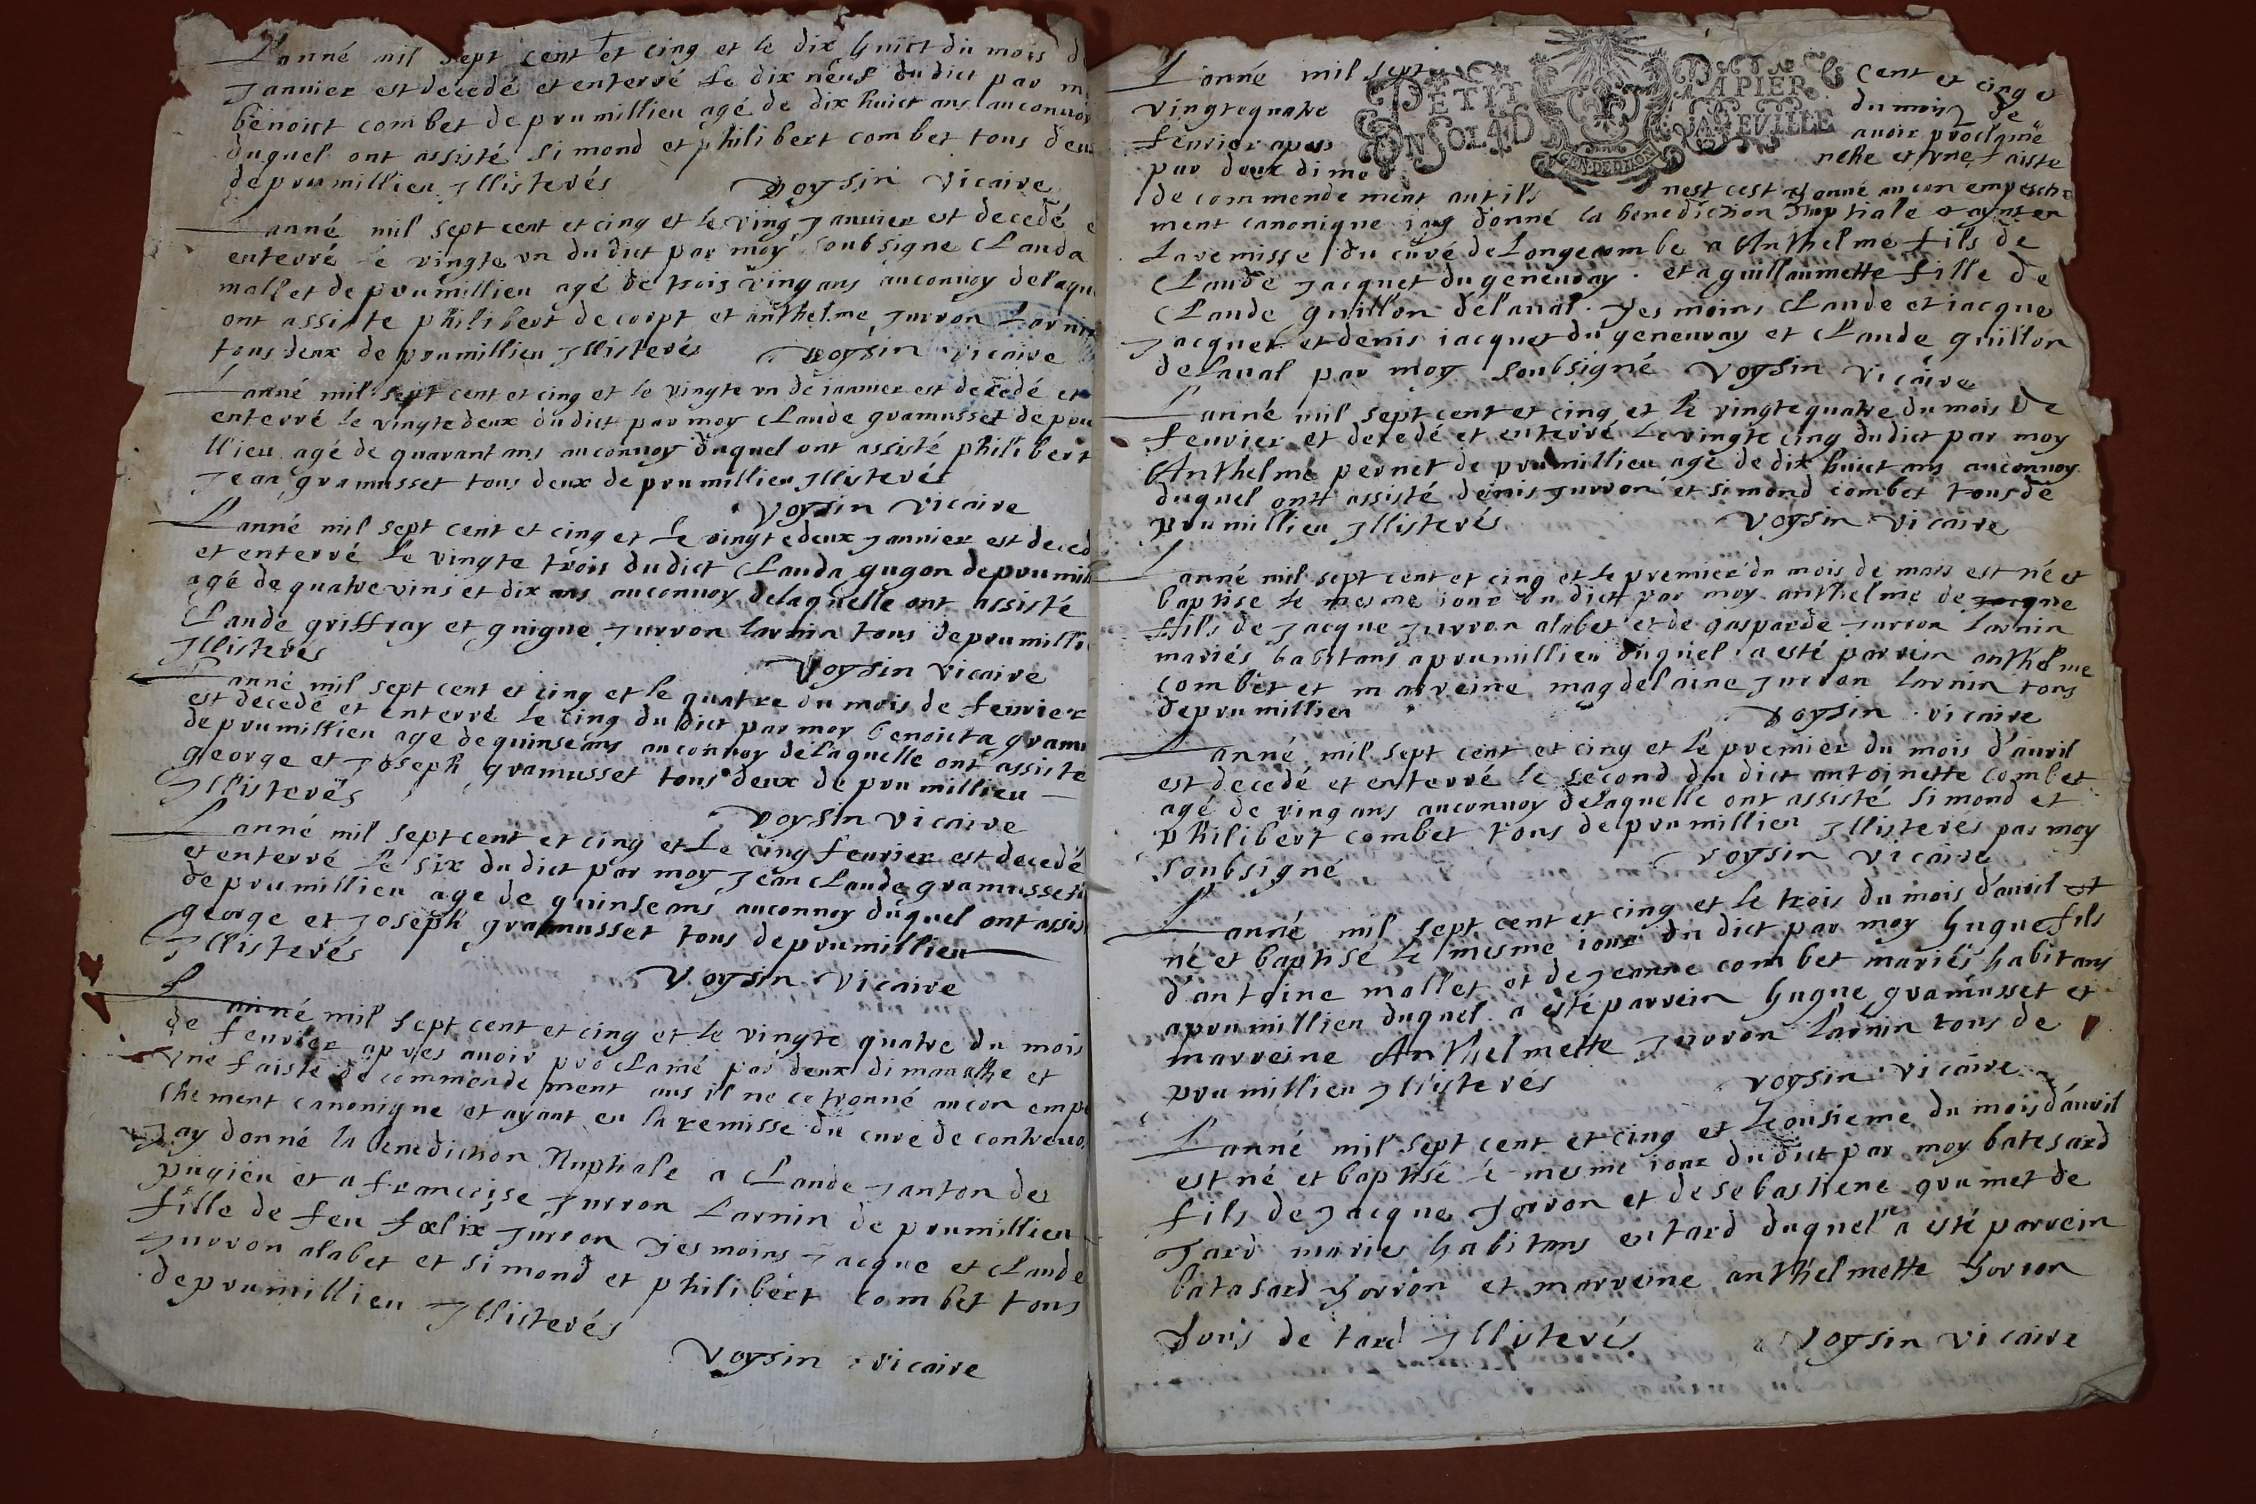 L'anné mil sept cent et cinq et le dix huict du mois d
Januier est decedé et enterré le dix neuf du dict par m
benoict combet de prumillieu agé de dix huict ans au conuoy
duquel ont assisté simond et philibert combet tous deu
de prumillieu Illisterés voysin vicaire
L'anné mil sept cent et cinq et le ving Januier est decedé e
enterré le vingte vn du dict par moy soubsigne Clauda
mallet de prumillieu agé de trois ving ans au conuoy de laqu
ont assiste philibert decorpt et anthelme Jurron Larnin
tous deux de prumillieu Illisterés voysin vicaire
L'anné mil sept cent et cinq et le vingte vn de ianuier est decedé et
enterré le vingte deux du dict par moy Claude gramusset de pru
llieu agé de quarant ans au conuoy duquel ont assisté philibert
Jean gramusset tous deux de prumillieu Illisterés
voysin vicaire
L'anné mil sept cent et cinq et le vingte deux Jannier est deced
et enterré le vingte trois du dict Clauda gugon de prumill
agé de quatre vins et dix ans au conuoy de laquelle ont assisté
Claude griffray et guigue Jurron larnin tous de prumilli
Illisterés voysin vicaire
L'anné mil sept cent et cinq et le quatre du mois de feurier
est decedé et enterré le cinq du dict par moy benoicta gramu
de prumillieu age de quinse ans au conuoy de laquelle ont assiste
george et Joseph gramusset tous deux de prumillieu
Illisterés
voysin vicaire
L'anné mil sept cent et cinq et le cinq feurier est decedé
et enterré le six du dict par moy Jean Claude gramusset
de prumillieu age de quinse ans au conuoy duquel ont assis
george et Joseph gramusset tous de prumillieu
Illisterés
voysin vicaire
L'anné mil sept cent et cinq et le vingte quatre du mois
de feurier apres auoir proclamé par deux dimanche et
vne faiste de commende ment aus il ne ce tronné aucon empe
chement canonique et ayant eu la remisse du cure de contreuo
Jay donné la benediction Nuptiale a Claude Janton de
pugieu et a francoise Jurron Larnin de prumillieu
fille de feu foelix Jurron Tesmoins Jacque et Claude
Jurron alabet et simond et philibért combet tous
de prumillieu Illisterés
voysin vicaire
L'anné mil sept cent et cinq et
PETIT PAPIER
UN SOL 4 D LA FEVILLE
GEN. DE DIION
vingte quatre du mois de
feurier apres auoir proclamé
par deux dima nche et vne faiste
de commende ment aut ils nest cest tronné aucon empesche
ment canonique iay donné la benediction Nuptiale et aynt eu
la remisse du curé de Longecombe a Anthelme fils de
Claude Jacquet du geneuray et a guillaumette fille de
Claude guillon de laual Tesmoins Claude et iacque
Jacquet et denis iacquet du geneuray et Claude guillon
de laual par moy soubsigné voysin vicaire
L'anné mil sept cent et cinq et le vingte quatre du mois de
feurier et decedé et enterré le vingte cinq du dict par moy
Anthelme pernet de prumillieu agé de dix huict ans au conuoy
duquel ont assisté denis Jurron et simond combet tous de
prumillieu Illisterés voysin vicaire
L'anné mil sept cent et cinq et le premier du mois de mars est né et
baptise le mesme iour du dict par moy anthelme de Jacque
fils de Jacque Jurron alabet et de gasparde Jurron Larnin
mariés habitans a prumillieu duquel a esté parrein anthelme
combet et marreine magdelaine Jurron larnin tous
de prumillieu voysin vicaire
L'anné mil sept cent et cinq et le premier du mois d'auril
est decedé et enterré le second du dict antoinette combet
agé de ving ans au conuoy de laquelle ont assisté simond et
philibert combet tous de prumillieu Illisterés par moy
soubsigné voysin vicaire
L'anné mil sept cent et cinq et le trois du mois d'auril est
né et baptisé le mesme iour du dict par moy hugue fils
d'antoine mallet et de Jeanne combet mariés habitans
a prumillieu duquel a esté parrein hugue gramusset et
marreine Anthelmette Jurron larnin tous de
prumillieu Illisterés voysin vicaire
L'anné mil sept cent et cinq et le onsieme du mois d'auril
est né et baptisé le mesme iour du dict par moy batesard
fils de Jacque Jorron et de sebastiene grumet de
Tard maries habitans en tard duquel a esté parrein
batasard Jorron et marreine anthelmette Jorron
tous de tard Illisterés voysin vicaire